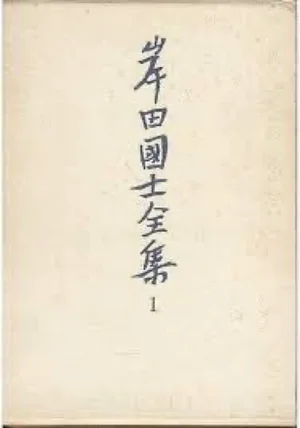 岸田國士全集
1